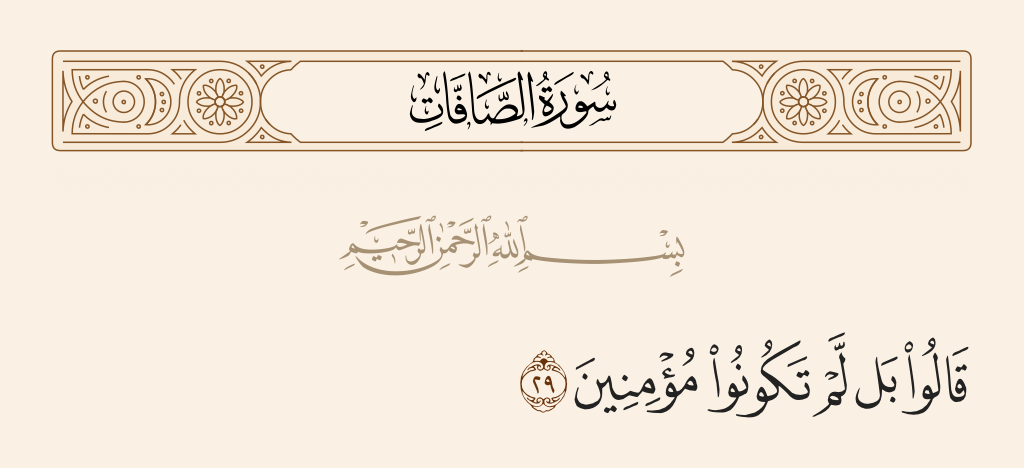 سُورَةُ الصَّافَّاتِ
بِسْمِ ٱللَّهِ ٱلرَّحْمَٰنِ ٱلرَّحِيمِ
قَالُوا۟ بَل لَّمْ تَكُونُوا۟ مُؤْمِنِينَ ٢٩